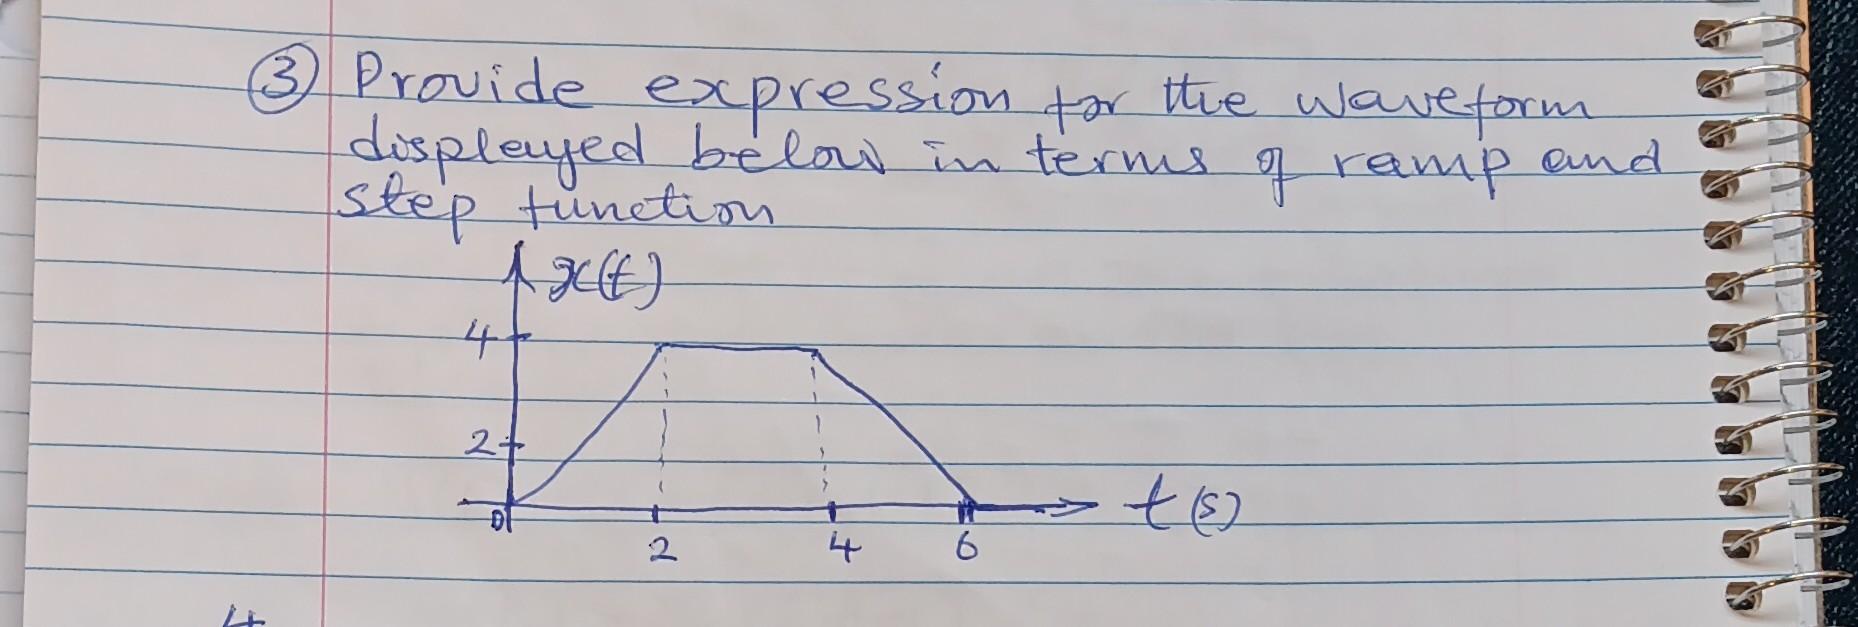 ③ Provide expression for the waveform
displayed below in terms of ramp and
step function
x(t)
4
2
0
2 4 6
t(s)
4